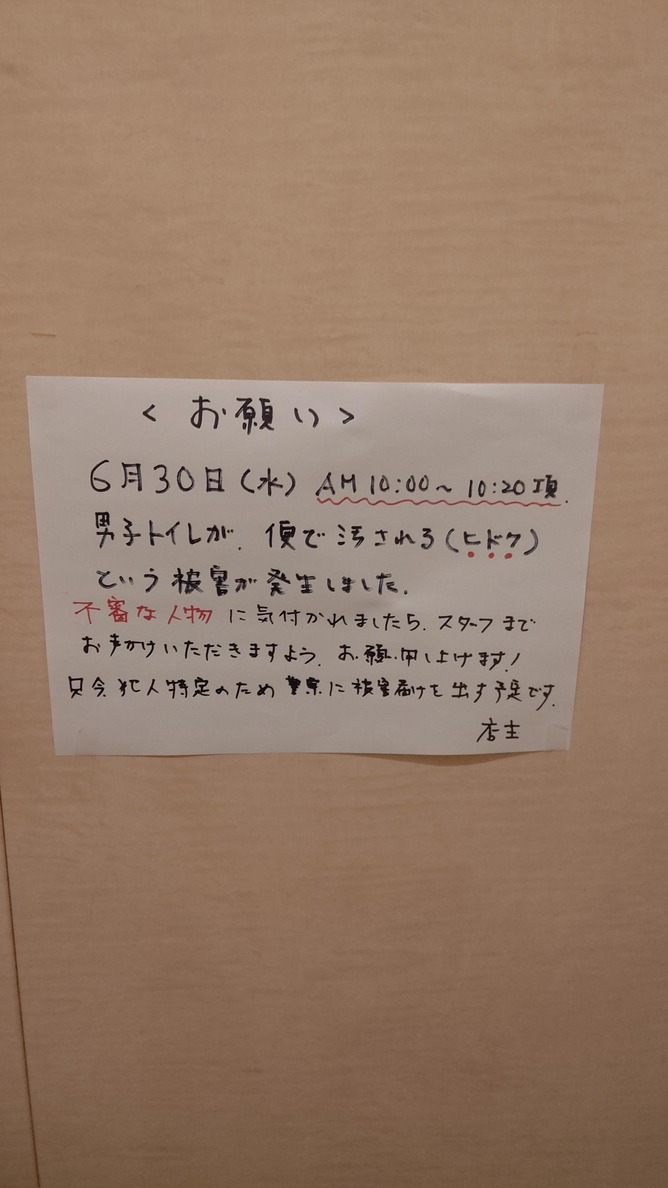 < お願い >
6月30日(水) AM 10:00~10:20項.
男子トイレが、便で汚される(ヒドク)
という被害が発生しました.
不審な人物に気付かれましたら、スタッフまで
お声かけいただきますよう、お願い申し上げます!
只今、犯人特定のため警察に被害届けを出す予定です.
店主